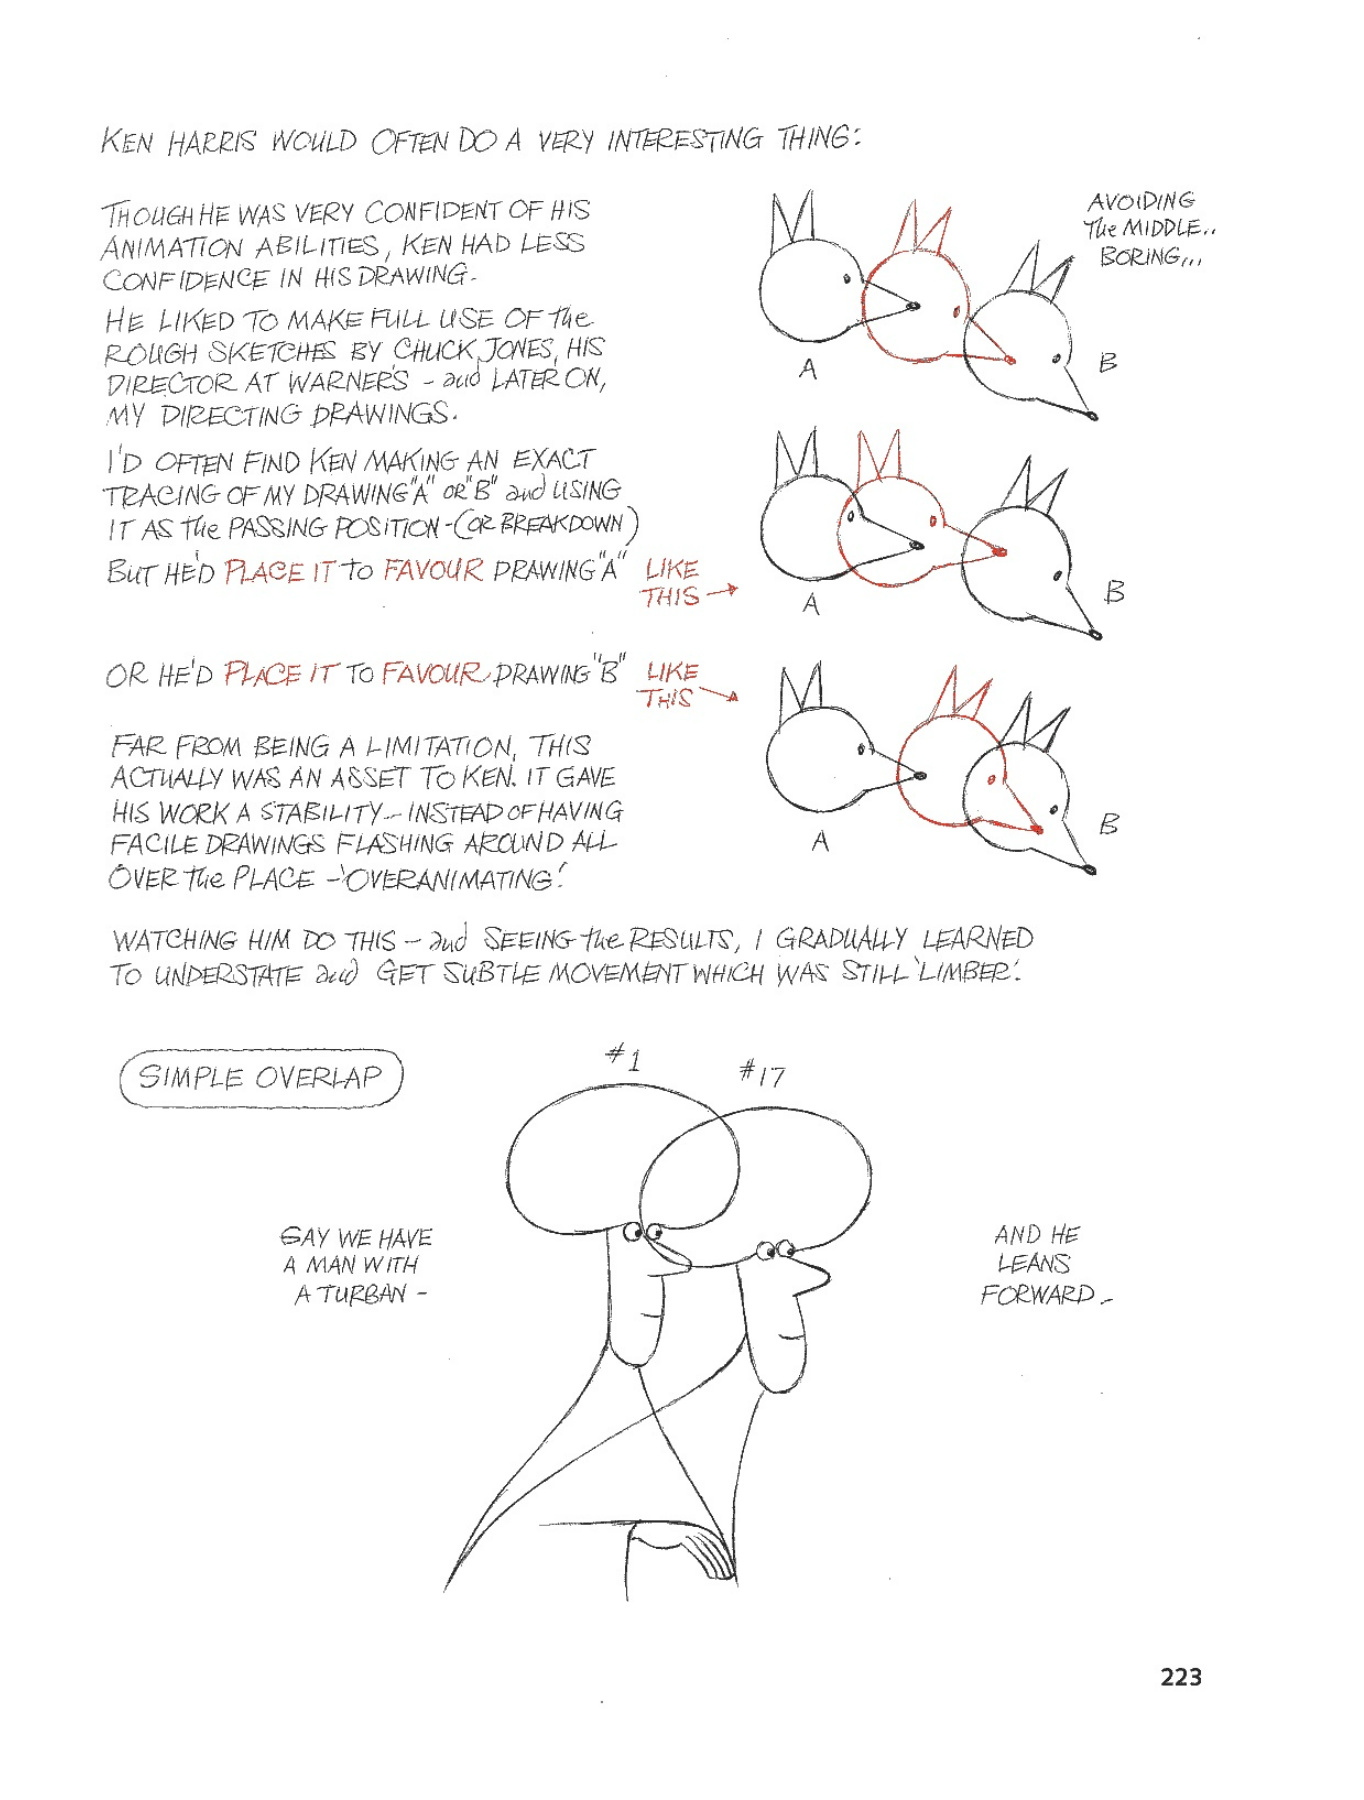 KEN HARRIS WOULD OFTEN DO A VERY INTERESTING THING:
THOUGH HE WAS VERY CONFIDENT OF HIS
ANIMATION ABILITIES, KEN HAD LESS
CONFIDENCE IN HIS DRAWING.
HE LIKED TO MAKE FULL USE OF The
ROUGH SKETCHES BY CHUCK JONES, HIS
DIRECTOR AT WARNER'S - and LATER ON,
MY DIRECTING DRAWINGS.
I'D OFTEN FIND KEN MAKING AN EXACT
TRACING OF MY DRAWING "A" OR "B" and USING
IT AS The PASSING POSITION - (OR BREAKDOWN)
BUT HE'D PLACE IT to FAVOUR DRAWING "A" LIKE
THIS
OR HE'D PLACE IT TO FAVOUR DRAWING "B" LIKE
THIS
AVOIDING
The MIDDLE..
BORING...
A
B
A
B
A
B
FAR FROM BEING A LIMITATION, THIS
ACTUALLY WAS AN ASSET TO KEN. IT GAVE
HIS WORK A STABILITY - INSTEAD OF HAVING
FACILE DRAWINGS FLASHING AROUND ALL
OVER The PLACE - 'OVERANIMATING.'
WATCHING HIM DO THIS - and SEEING the RESULTS, I GRADUALLY LEARNED
TO UNDERSTATE and GET SUBTLE MOVEMENT WHICH WAS STILL 'LIMBER.'
SIMPLE OVERLAP
#1
#17
SAY WE HAVE
A MAN WITH
A TURBAN -
AND HE
LEANS
FORWARD -
223